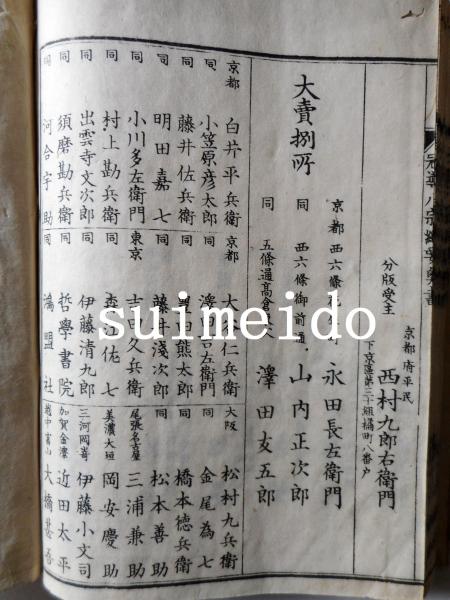 分版受主
京都府平民
下京區第三十組橘町八番戸
西村九郎右衛門
大賣捌所
永田長左衛門
同 西六條御前通 山内正次郎
同 五條通高倉 澤田友五郎
京都 白井平兵衛
同 小笠原彦太郎
同 藤井佐兵衛
同 明田嘉七
同 小川多左衛門
同 村上勘兵衛
同 出雲寺文次郎
同 須磨勘兵衛
同 河合宇助
京都 大谷仁兵衛
同 澤田吉左衛門
同 熊太郎
同 藤井淺次郎
東京 吉田久兵衛
同 森江佐七
同 伊藤清九郎
同 哲學書院
同 鴻盟社
大阪 松村九兵衛
同 金尾為七
同 橋本徳兵衛
同 松本善助
尾張名古屋 三浦兼助
美濃大垣 岡安慶助
三河岡崎 伊藤小文司
加賀金澤 近田太平
越中富山 大橋甚吾
suimeido